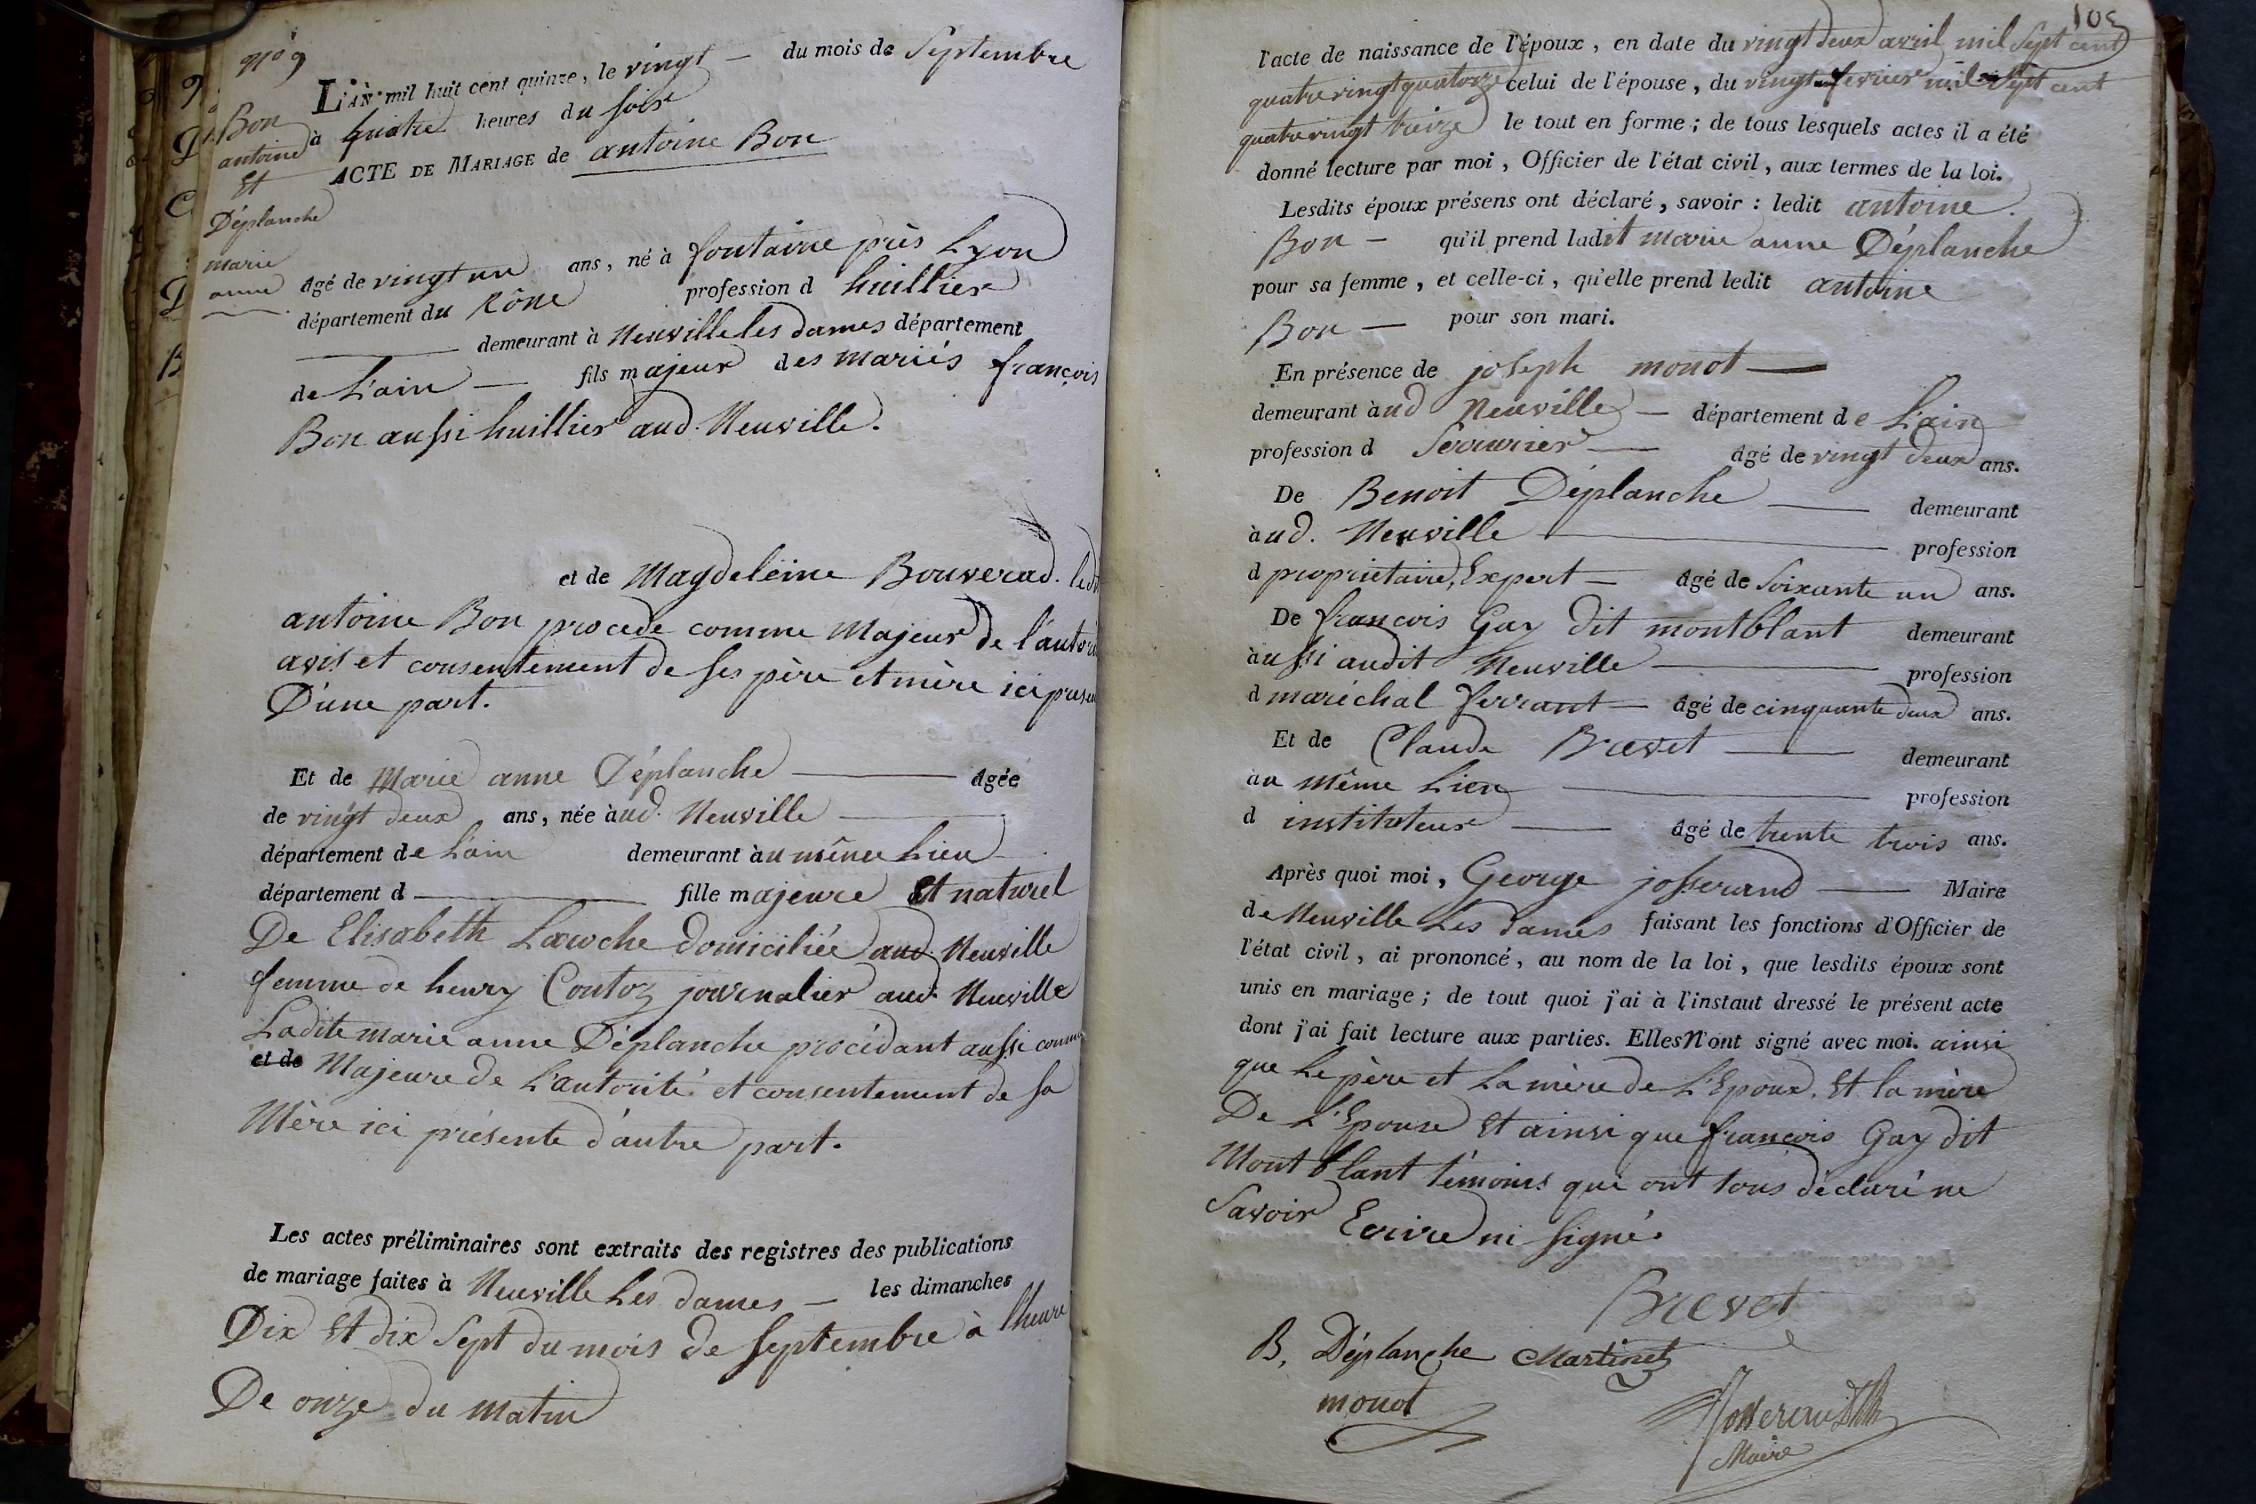 N.º 9
Bon
antoine
Et
Déplanche
marie
anne
L'AN mil huit cent quinze, le vingt — du mois de Septembre
à quatre heures du soir
ACTE DE MARIAGE de antoine Bon
âgé de vingt un ans, né à fontaine près Lyon
département du Rône profession d huillier
demeurant à Neuville les dames département
de L'ain — fils majeur des mariés françois
Bon aussi huillier aud. Neuville.
et de Magdeleine Bouverad. ledit
antoine Bon procede comme Majeur de l'autorité
avis et consentement de ses père et mère ici présens
D'une part.
Et de Marie anne Déplanche — âgée
de vingt deux ans, née àud. Neuville
département de L'ain demeurant àu même Lieu
département d — fille majeure Et naturel
De Elisabeth Laroche domiciliée aud. Neuville
femme de henry Contoz journalier aud. Neuville
Ladite marie anne Déplanche procédant aussi comme
et de Majeure de L'autorité et consentement de sa
Mère ici présente d'autre part.
Les actes préliminaires sont extraits des registres des publications
de mariage faites à Neuville Les dames — les dimanches
Dix Et dix Sept du mois de Septembre à l'heure
De onze du matin
105
l'acte de naissance de l'époux, en date du vingt deux avril mil Sept cent
quatre vingt quatorze celui de l'épouse, du vingt un fevrier mil Sept cent
quatre vingt treize le tout en forme; de tous lesquels actes il a été
donné lecture par moi, Officier de l'état civil, aux termes de la loi.
Lesdits époux présens ont déclaré, savoir : ledit antoine
Bon — qu'il prend ladit marie anne Déplanche
pour sa femme, et celle-ci, qu'elle prend ledit antoine
Bon — pour son mari.
En présence de joseph monot —
demeurant àud Neuville — département de L'ain
profession d Serrurier — âgé de vingt deux ans.
De Benoit Déplanche — demeurant
àud. Neuville — profession
d propriétaire, Expert — âgé de Soixante un ans.
De françois Gay dit montblant demeurant
àussi audit Neuville — profession
d maréchal ferrant — âgé de cinquante deux ans.
Et de Claude Brevet — demeurant
àu même Lieu — profession
d instituteur — âgé de trente trois ans.
Après quoi moi, George josserand — Maire
de Neuville Les dames faisant les fonctions d'Officier de
l'état civil, ai prononcé, au nom de la loi, que lesdits époux sont
unis en mariage; de tout quoi j'ai à l'instaut dressé le présent acte
dont j'ai fait lecture aux parties. Elles N'ont signé avec moi. ainsi
que Le père et La mère de L'Epoux. Et la mère
De L'Epouse Et ainsi que françois Gay dit
Mont blant témoins qui ont tous déclaré ne
Savoir Ecrire ni signé.
Brevet
B. Déplanche Martinet
monot
Josserand
Maire